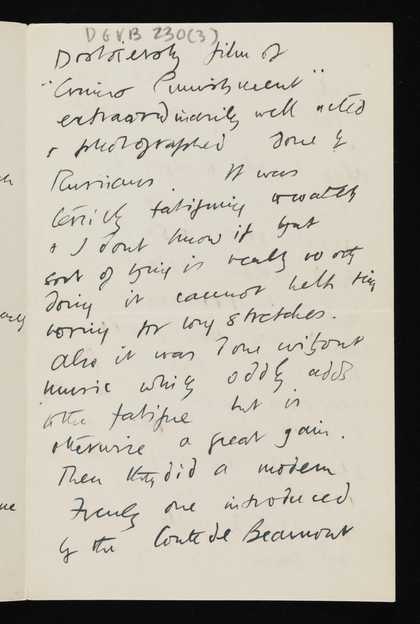 DGVB 230(3)
Dostoievsky film of
"Crime & Punishment"
extraordinarily well acted
& photographed done by
Russians. It was
terribly fatiguing to watch
& I dont know if that
sort of thing is really worth
doing it cannot help being
boring for long stretches.
Also it was done without
music which oddly adds
to the fatigue but is
otherwise a great gain.
Then they did a modern
French one introduced
by the Conte de Beaumont